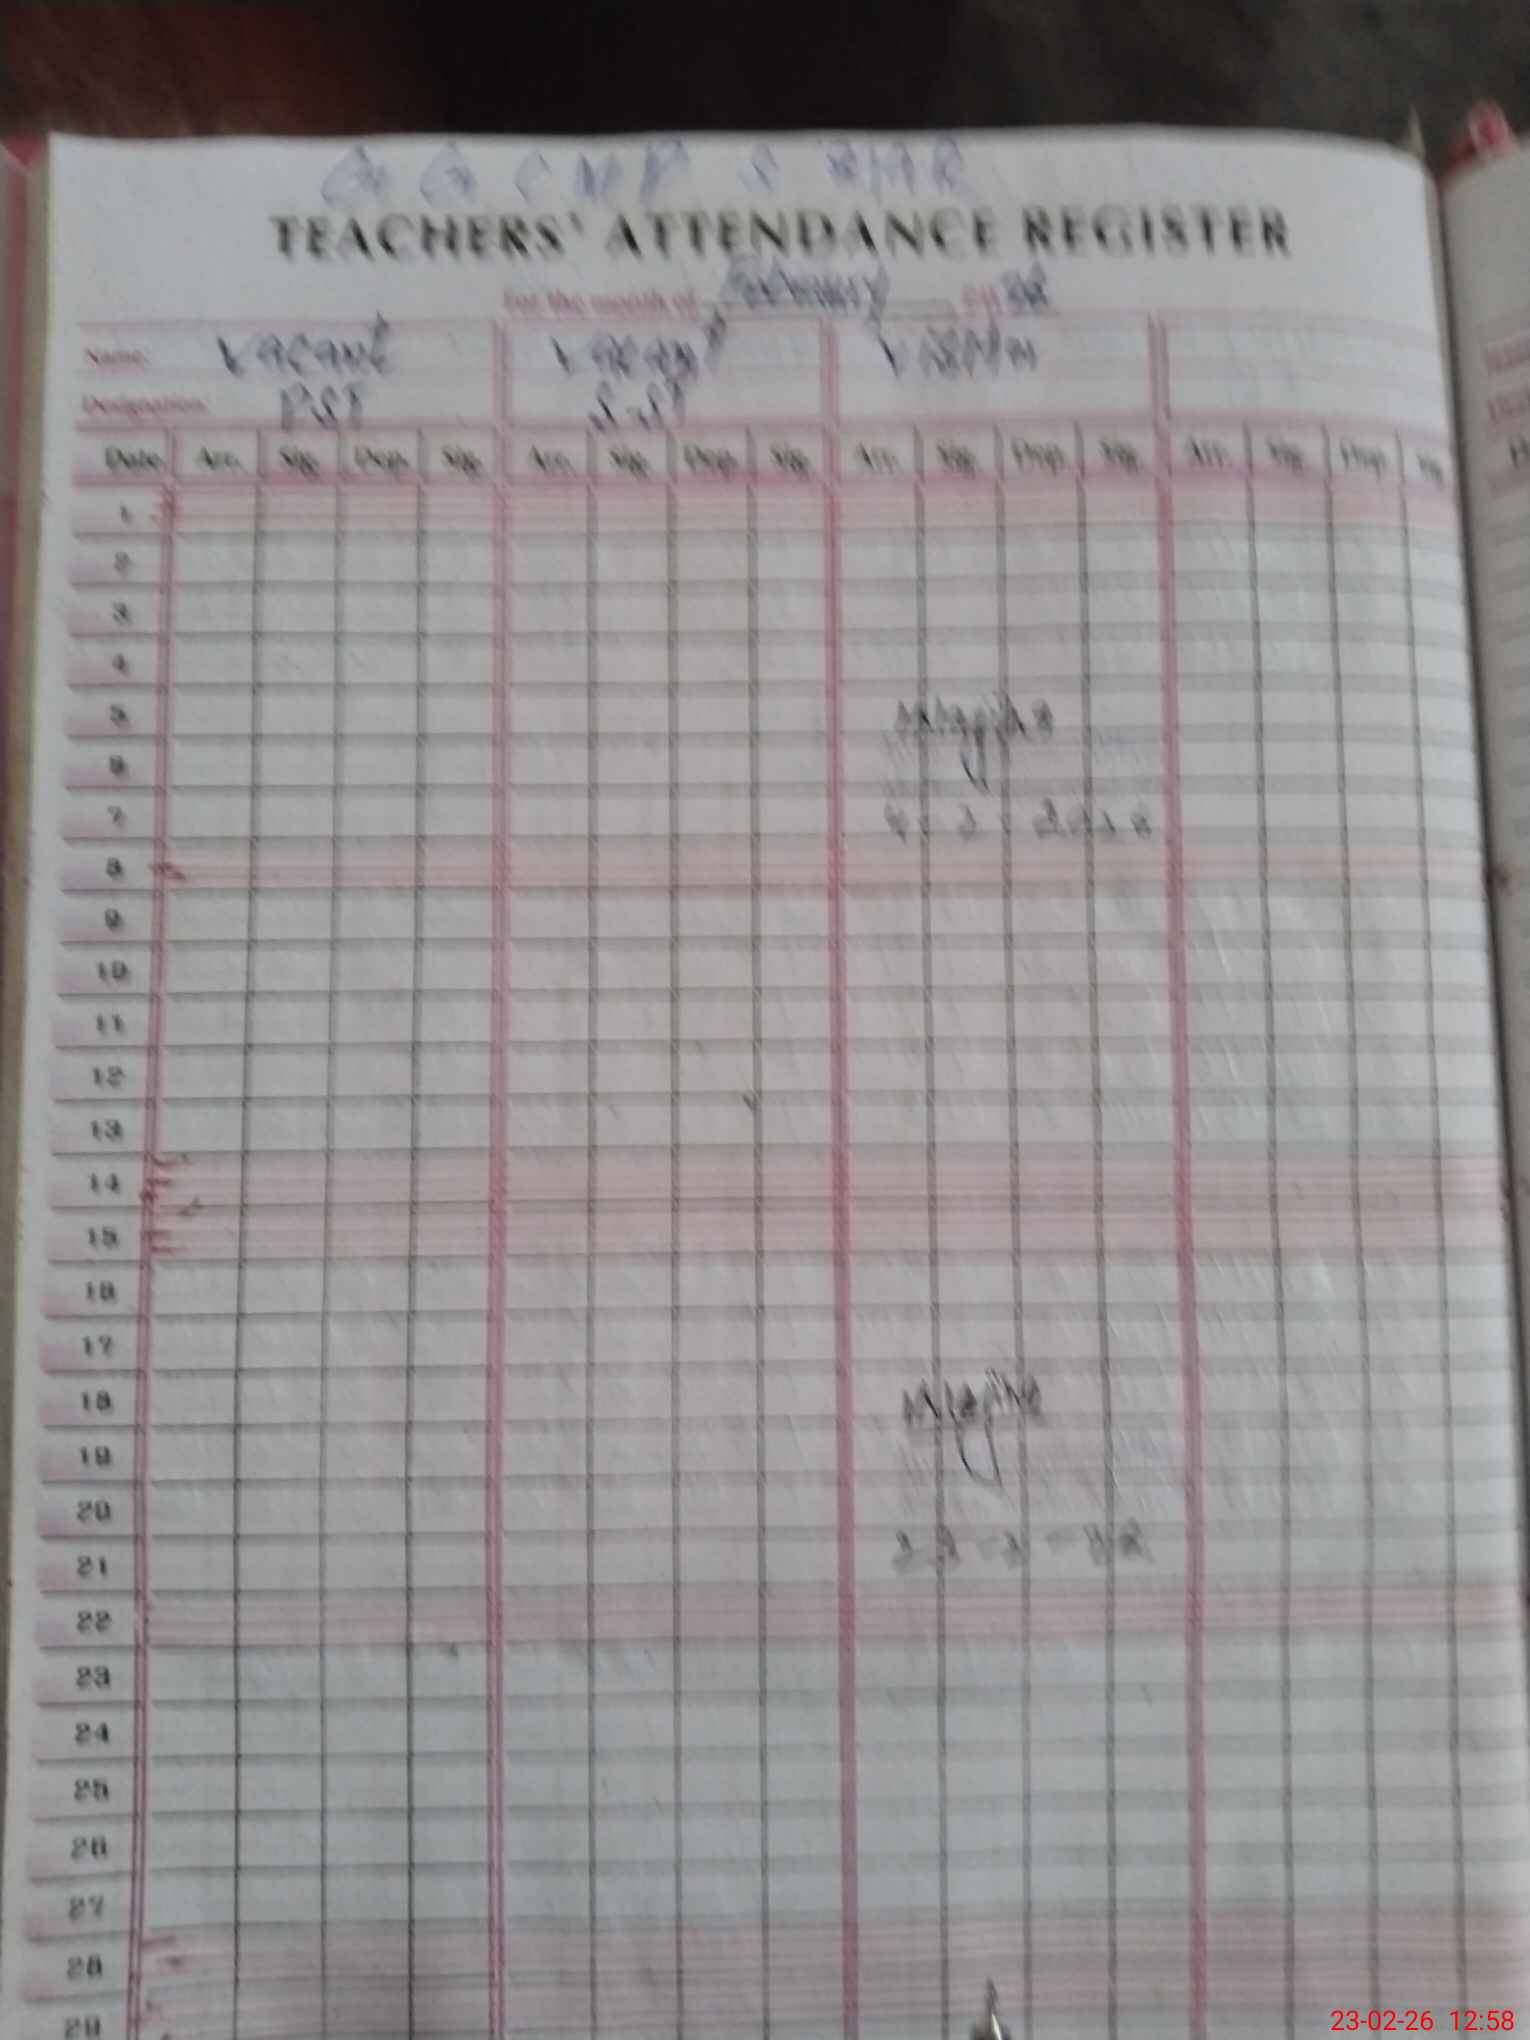 TEACHERS' ATTENDANCE REGISTER
For the month of February
Name: Vacant Vacant
Designation: PST S-ST
Date Arr. Sig. Dep. Sig. Arr. Sig. Dep. Sig. Arr. Sig. Dep. Sig. Arr. Sig. Dep. Sig.
1
2
3
4
5
6
7
8
9
10
11
12
13
14
15
16
17
18
19
20
21
22
23
24
25
26
27
28
29
23-02-26 12:58